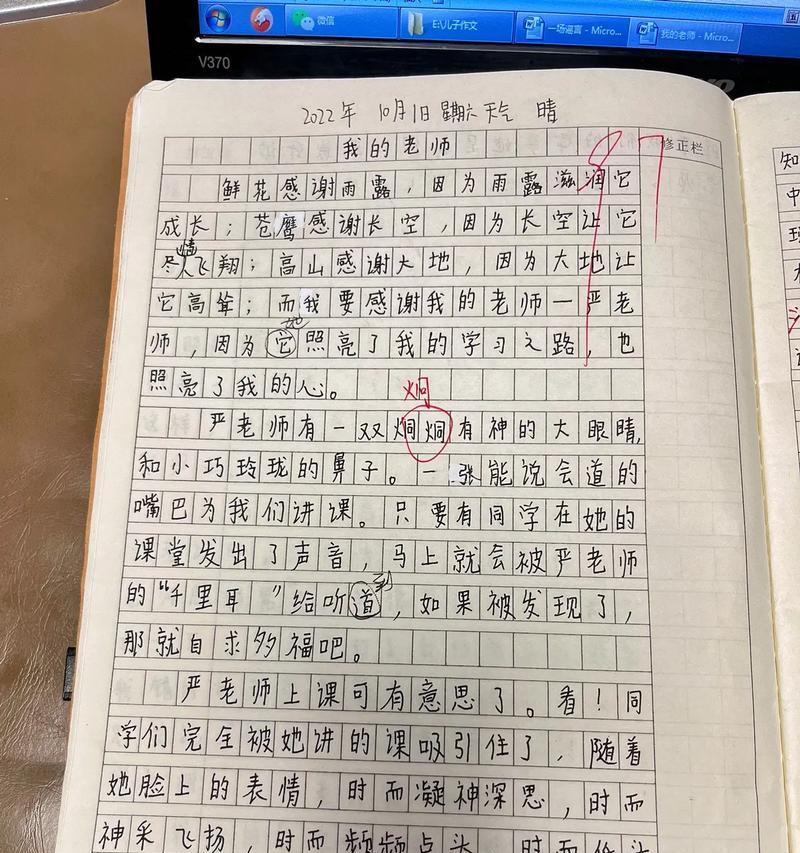 微信
E:\儿子作文
一场谣言 - Micro...
我的老师 - Micro...
V370
2022年 10月1日 星期六 天气 晴
我的老师
修正栏
97
鲜花感谢雨露，因为雨露滋润它
成长；苍鹰感谢长空，因为长空让它
情
飞翔；高山感谢大地，因为大地让
它高耸；而我要感谢我的老师一严老
她
师，因为它照亮了我的学习之路，也
照亮了我的心。
炯
严老师有一双炯炯有神的大眼睛，
和小巧玲珑的鼻子。一张能说会道的
嘴巴为我们讲课。只要有同学在她的
课堂发出了声音，马上就会被严老师
到
的“千里耳”给听道，如果被发现了，
那就自求多福吧。
严老师上课可有意思了。看！同
学们完全被她讲的课吸引住了，随着
她脸上的表情，时而凝神深思，时而
神采飞扬，时而频频点头，时而低头
知
中